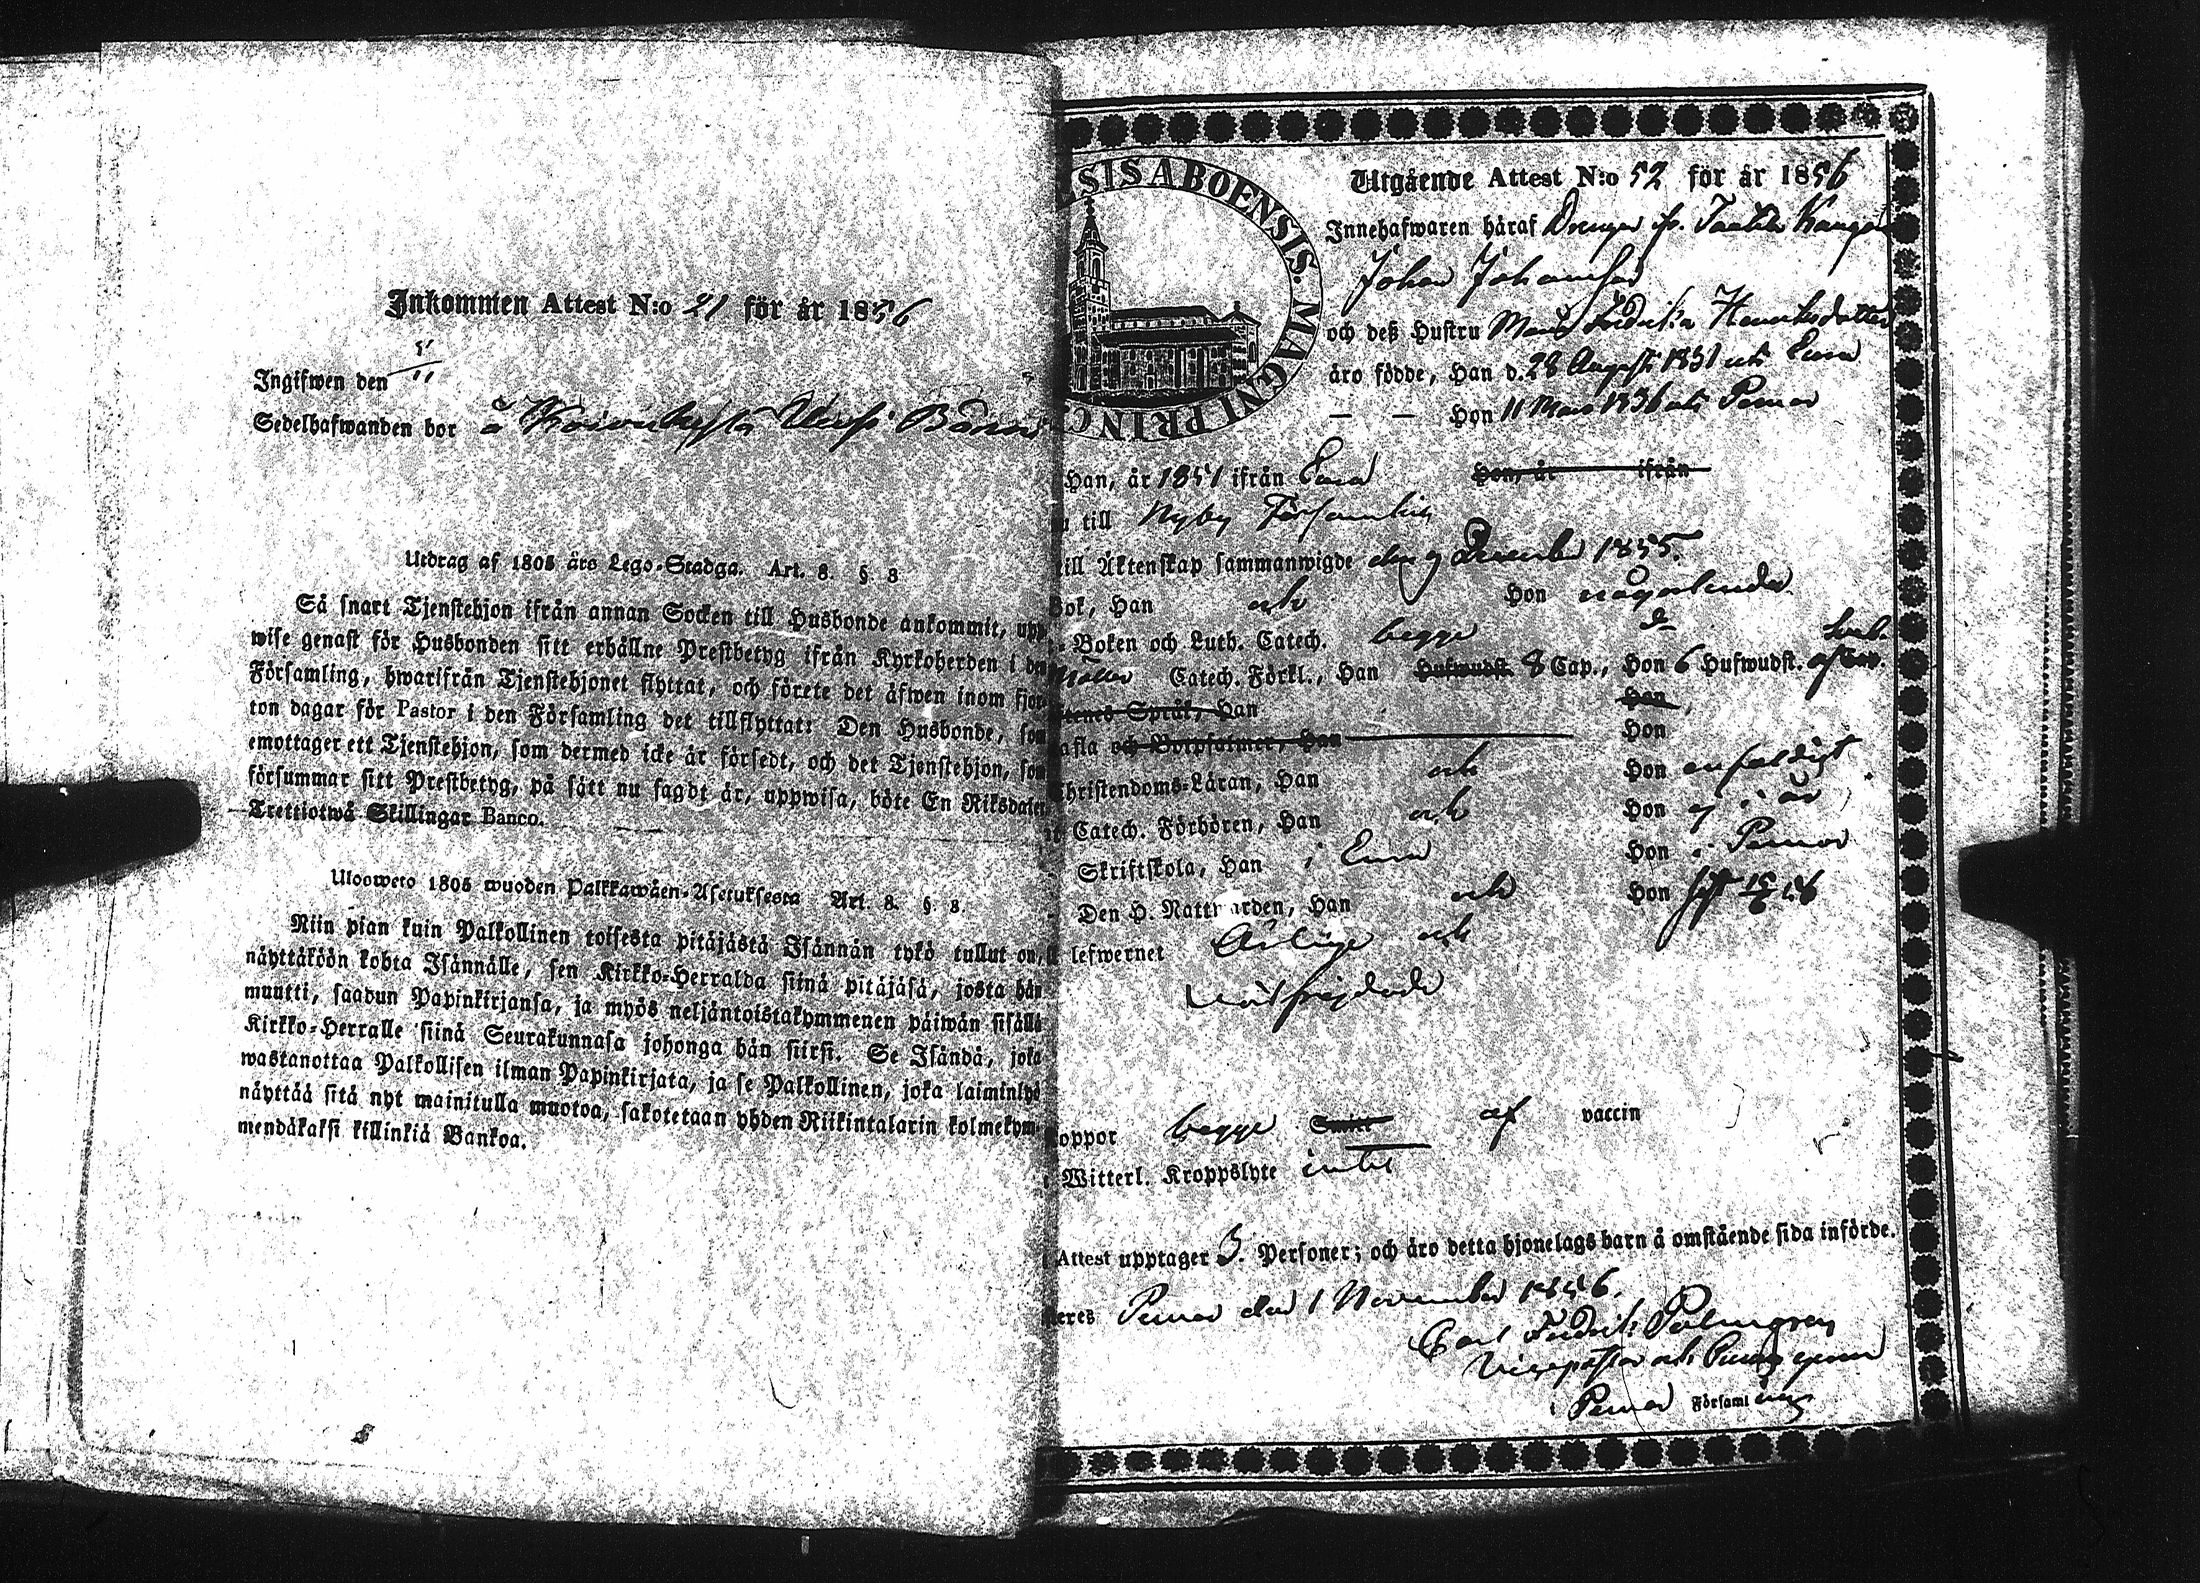 Inkommen Attest N:o 21 för år 1856
Ingifwen den 5/11
Sedelhafwanden bor å
Utdrag af 1805 års Lego-Stadga. Art. 8. §. 8
Så snart Tjenstehjon ifrån annan Socken till Husbonde ankommit, upp-
wise genast för Husbonden sitt erhållne Prestbetyg ifrån Kyrkoherden i den
Församling, hwarifrån Tjenstehjonet flyttat, och förete det äfwen inom fjor-
ton dagar för Pastor i den Församling det tillflyttat: Den Husbonde, som
emottager ett Tjenstehjon, som dermed icke är försedt, och det Tjenstehjon, som
försummar sitt Prestbetyg, på sätt nu sagdt är, uppwisa, böte En Riksdaler
Trettiotwå Skillingar Banco.
Ulosweto 1805 wuoden Palkkawäen-Asetuksesta Art. 8. §. 8.
Niin pian kuin Palkollinen toisesta pitäjästä Isännän tykö tullut on,
näyttäköön kohta Isännälle, sen Kirkko-Herralda siinä pitäjäsä, josta hän
muutti, saadun Papinkirjansa, ja myös neljäntoistakymmenen päiwän sisällä
Kirkko-Herralle siinä Seurakunnasa johonga hän siirsi. Se Isändä, joka
wastanottaa Palkollisen ilman Papinkirjata, ja se Palkollinen, joka laiminlyö
näyttää sitä nyt mainitulla muotoa, sakotetaan yhden Riikintalarin kolmekym-
mendäkaksi killinkiä Bankoa.
SIS ABOENSIS. MAGNI PRINC
Utgående Attest N:o 52 för år 1856
Innehafwaren häraf Drengen fr.
Johan Johansson
och deß Hustru Maria Fredrika Henriksdotter
äro födde, Han d. 28 Augusti 1831 uti Eura
— — Hon 11 Mars 1836 uti Pemar
Han, år 1851 ifrån Eura Hon, år ifrån
till Nyby Församling
till Äktenskap sammanwigde den 9 December 1855.
Bok, Han och Hon någorlunda
Boken och Luth. Catech. begge
Catech. Förkl., Han Hufwudst. 8 Cap., Hon 6 Hufwudst. af
Språk, Han Hon
tafla och Botpsalmer, Han Hon
Christendoms-Läran, Han och Hon enfaldigt
Catech. Förhören, Han och Hon ej i år
Skriftskola, Han i Eura Hon i Pemar
Den H. Nattwarden, Han och Hon
lefwernet Ärlige och
wälfrejdade
koppor begge Smitt af vaccin
Witterl. Kroppslyte intet
Attest upptager 3. Personer; och äro detta hjonelags barn å omstående sida införde.
Pemar den 1 November 1856.
Carl Fredrik Palmgren
Vicepastor och
i Pemar Församling